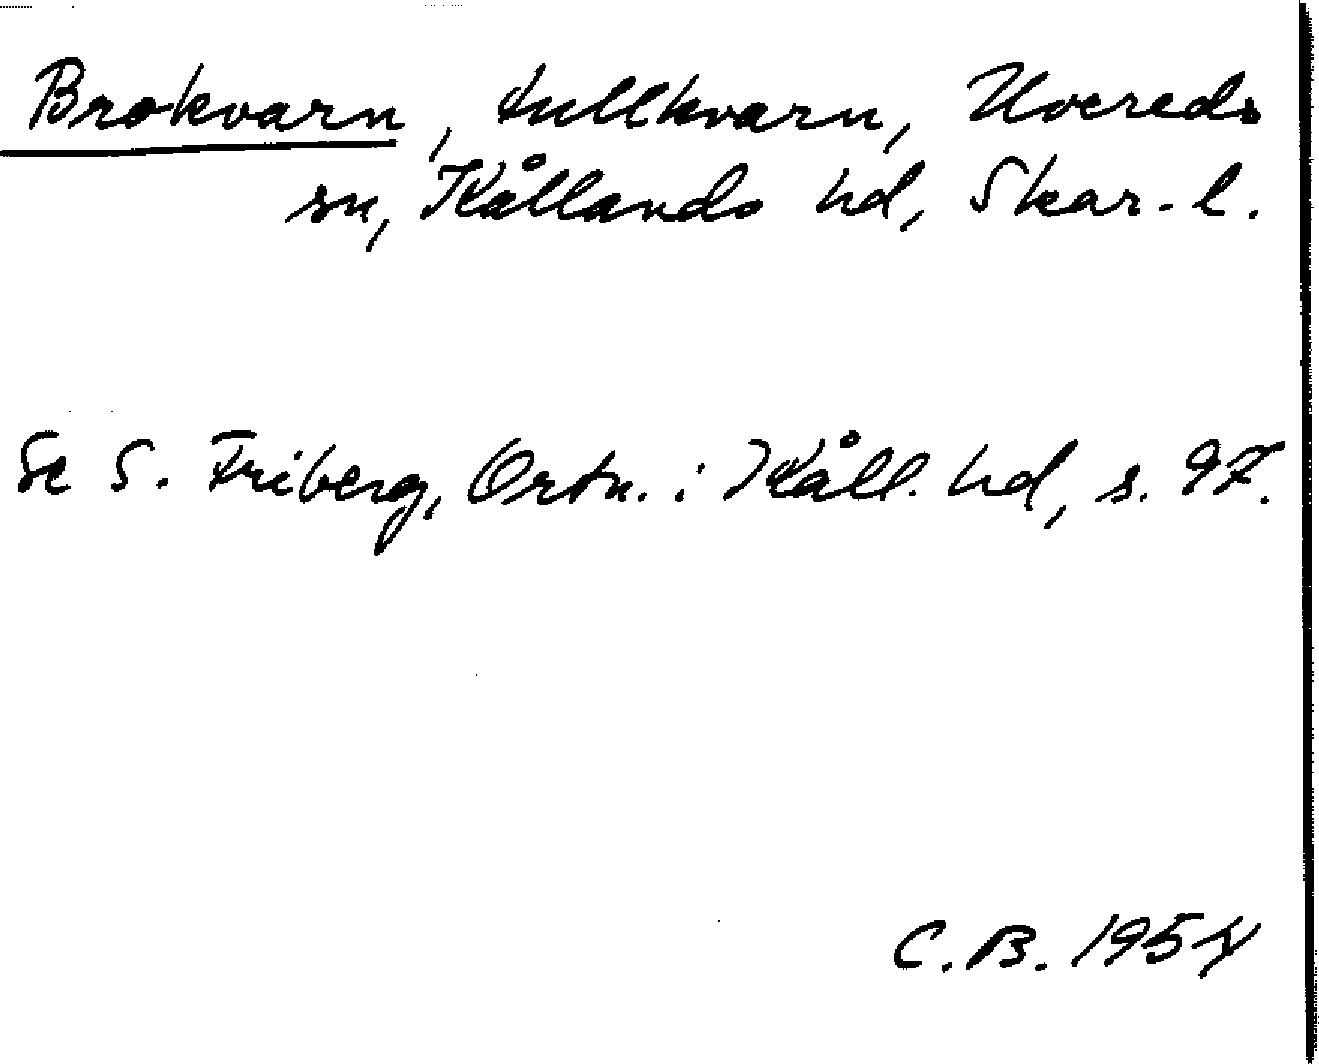 Brokvarn, tullkvarn, Uvereds
sn, Kållands hd, Skar. l.
Se S. Friberg, Ortn. i Kåll. hd, s. 97.
C. B. 1954